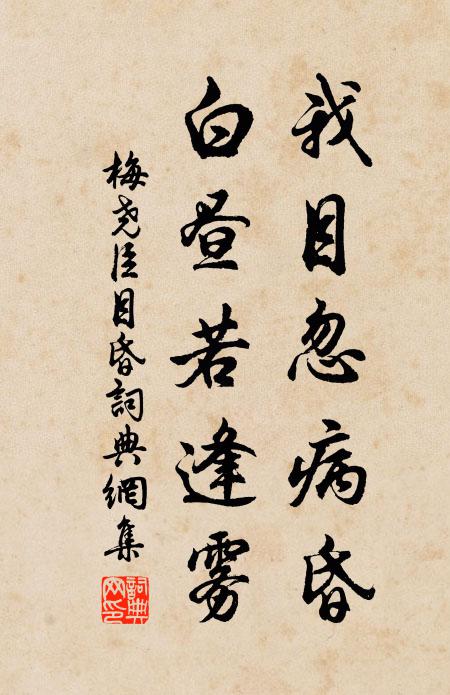 我目忽病昏
白昼若逢雾
梅尧臣目昏詞典網集
詞典网印